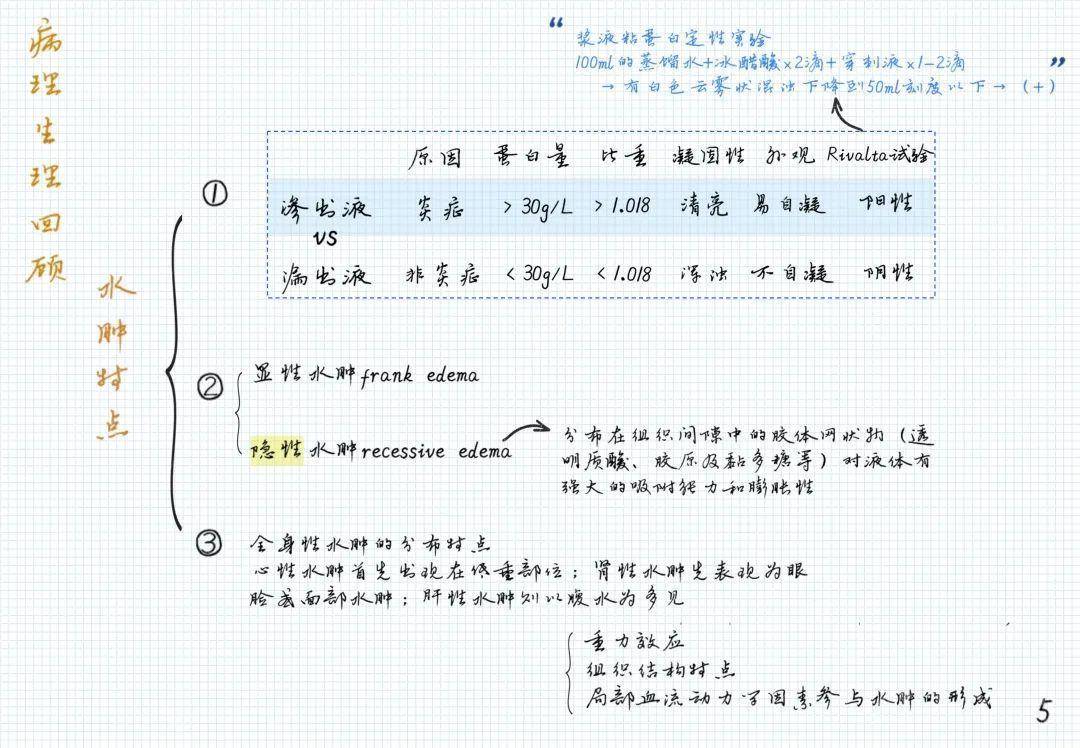 病理生理回顾
水肿特点
“
浆液粘蛋白定性实验
100ml的蒸馏水+冰醋酸×2滴+穿刺液×1-2滴
→有白色云雾状混浊下降到50ml刻度以下→(+)
”
原因 蛋白量 比重 凝固性 外观 Rivalta试验
①
渗出液 炎症 >30g/L >1.018 清亮 易自凝 阳性
VS
漏出液 非炎症 <30g/L <1.018 浑浊 不自凝 阴性
②
显性水肿frank edema
隐性水肿recessive edema
→
分布在组织间隙中的胶体网状物(透
明质酸、胶原及黏多糖等)对液体有
强大的吸附能力和膨胀性
③
全身性水肿的分布特点
心性水肿首先出现在低垂部位;肾性水肿先表现为眼
睑或面部水肿;肝性水肿则以腹水为多见
重力效应
组织结构特点
局部血流动力学因素参与水肿的形成
5